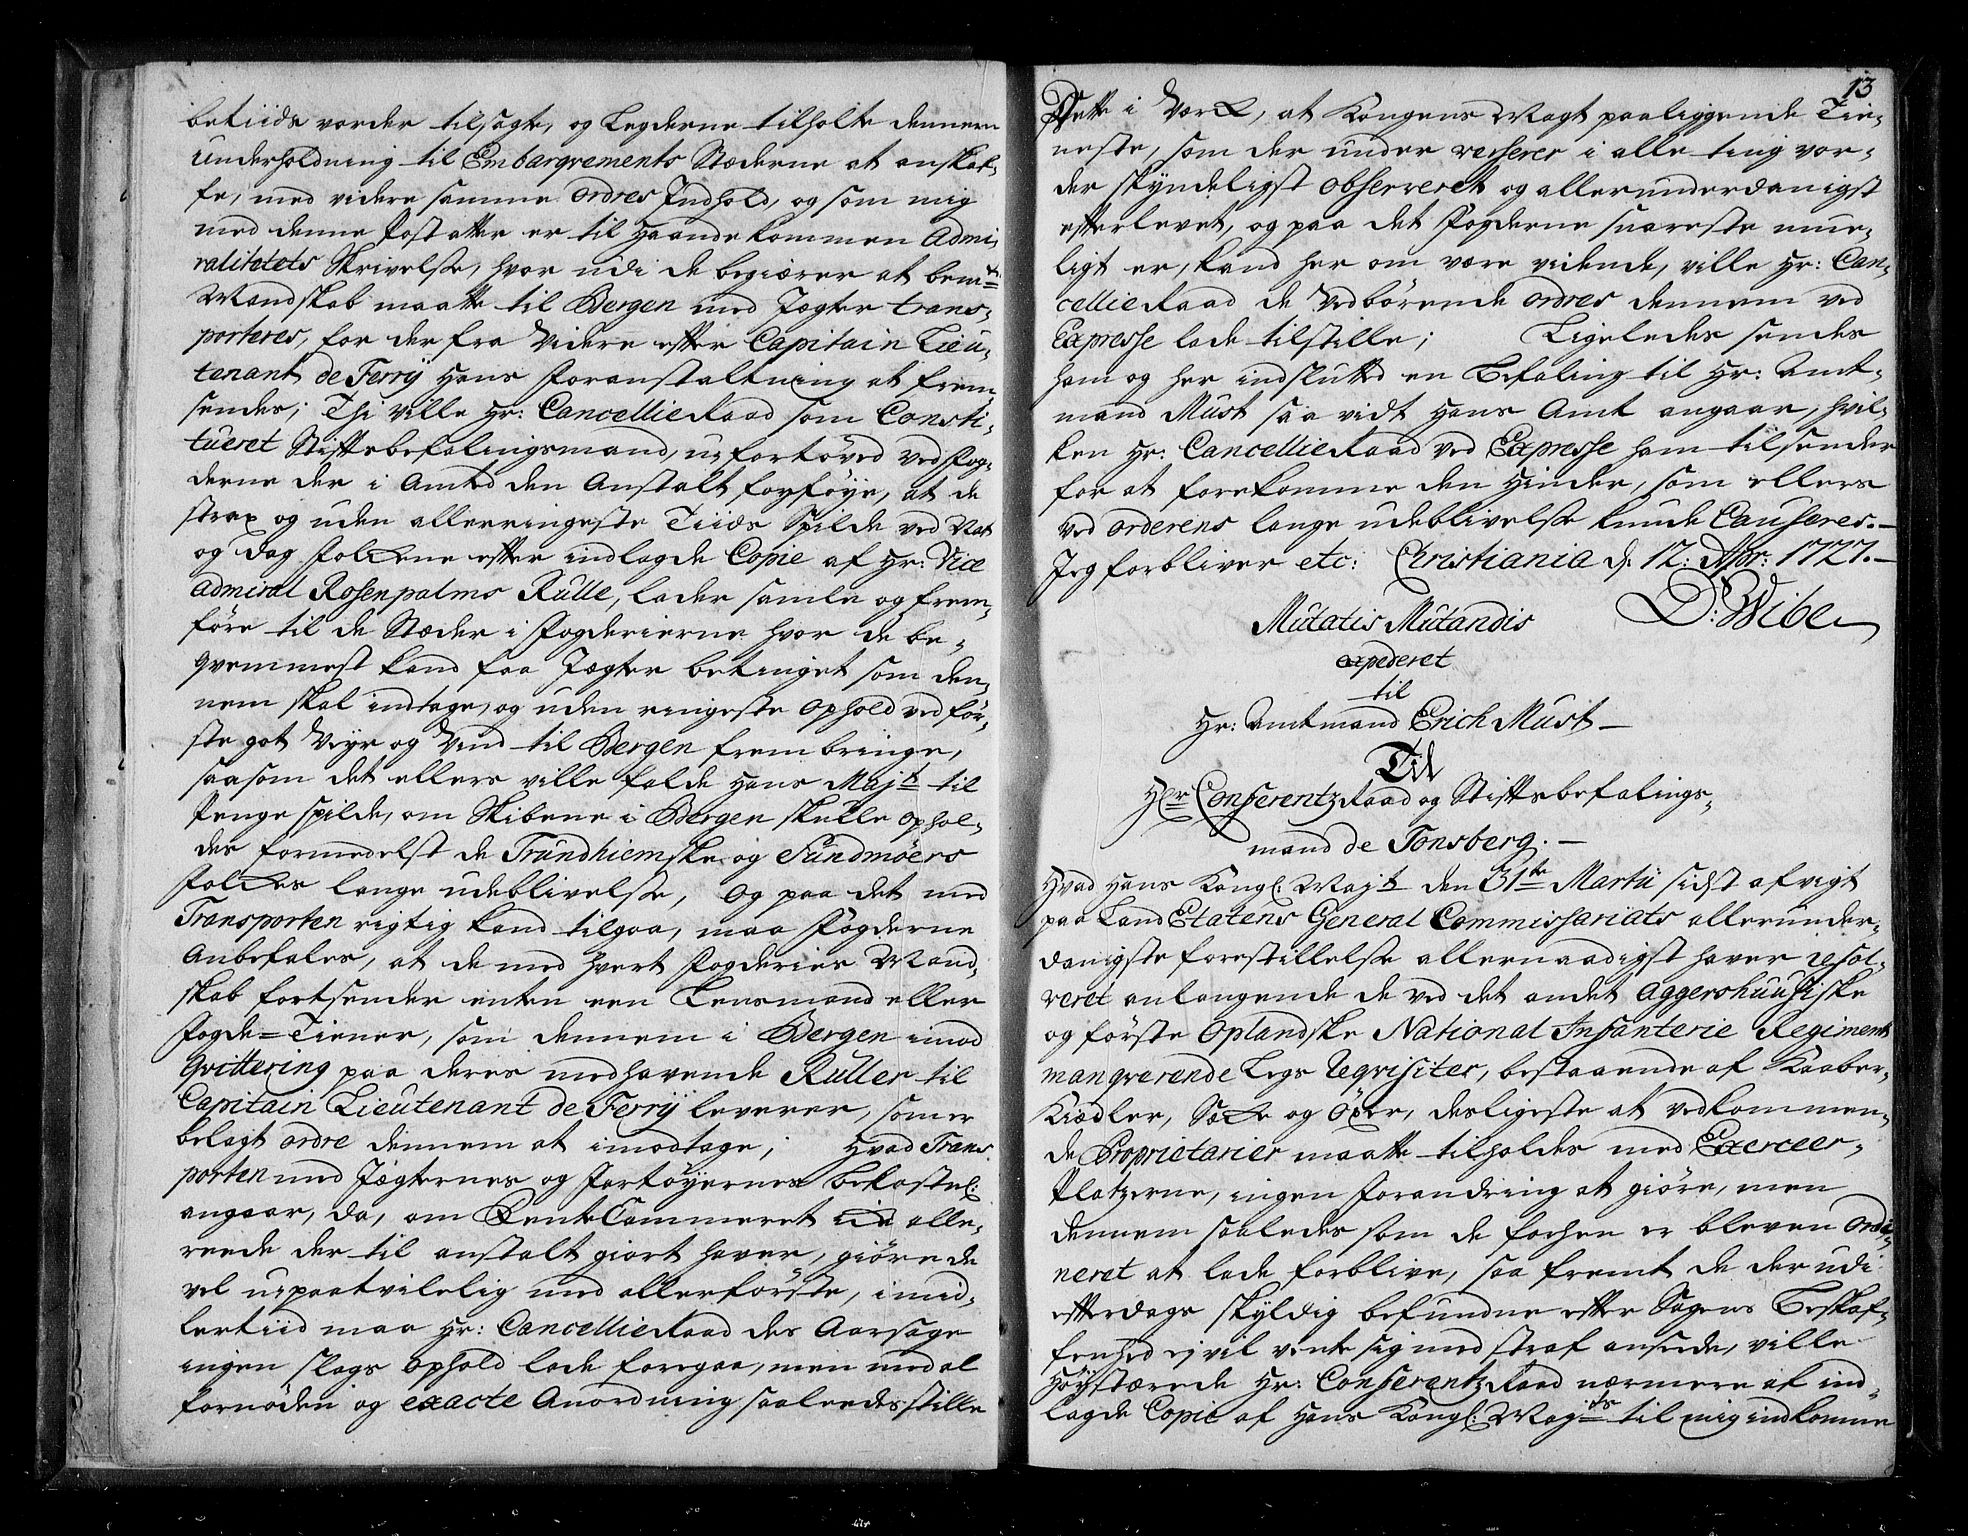 betiids vorder tilsagte, og Legderne tilholte dennem
underholdning til Embarqvements Stæderne at anskaf-
fe, med videre samme ordres Indhold, og som mig
med denne Post atter er til Haande kommen Admi-
ralitetets Skrivelse, hvor udi de begiærer at bemte
Mandskab maatte til Bergen med Jægter trans-
porteres, for der fra videre efter Capitain Lieu-
tenant de Ferrÿ Hans Foranstaltning at frem-
sendes; Thj ville Hr: CancellieRaad som Consti-
tueret Stiftsbefalingsmand, ufortøved ved Fog-
derne der i Amtet den Anstalt forføye, at de
strax og uden allerringeste Tiids Spilde ved Nat
og dag Folckene efter indlagde Copie af Hr: Vice
Admiral Rosenpalms Rulle, lader samle og frem-
føre til de Stæder i Fogderierne hvor de be-
qvemmest kand faa Jægter betinget som den-
nem skal indtage, og uden ringeste ophold ved før-
ste got Veyr og Vind til Bergen frembringe,
saasom det ellers ville falde Hans Majt til
Penge spilde, om Skibene i Bergen skulle ophol-
des formedelst de Trundhiemske og Sundmøers
Folckes lange udeblivelse, og paa det med
Transporten rigtig kand tilgaa, maa Fogderne
Anbefales, at de med hvert Fogderies Mand-
skab fortsender enten een Lensmand eller
Fogde-Tiener, som dennem i Bergen imod
Qvittering paa deres medhavende Ruller til
Capitain Lieutenant de Ferrÿ leverer, som er
belagt ordre dennem at imodtage; Hvad Trans-
porten med Jægternes og Fartøyernes bekostel:
angaar, da, om RenteCammeret ei alle-
reede der til anstalt giort haver, giøre de
vel upaatvilelig med allerførste, imid-
lertiid maa Hr: CancellieRaad des Aarsage
ingen slags ophold lade foregaa, men med al
fornøden og exacte Anordning saaleedes stille
13
Dette i Værck, at Kongens Magt paaliggende Tie-
neste, som der under verserer i alle ting vor-
der skyndeligst observeret og allerunderdanigst
efterlevet, og paa det Fogderne snareste mue-
ligt er, kand her om være vidende, ville Hr: Can-
cellieRaad de Vedbørende ordres dennem ved
Expresse lade tilstille; Ligeledes sendes
ham og her indsluttet en Befaling til Hr: Amt-
mand Must saa vidt Hans Amt angaar, hvil-
ken Hr: CancellieRaad ved Expresse ham tilsender
for at forekomme den Hinder, som ellers
ved orderens lange udeblivelse kunde Causeres.-
Jeg forbliver etc: Christiania d. 12. Apr: 1727.-
D: Wibe
Mutatis Mutandis
expederet
til
Hr: Amtmand Erich Must -
Til
Hr ConferentzRaad og Stiftsbefalings-
mand de Tonsberg. -
Hvad Hans Kongl: Majt den 31te Martii sidst afvigt
paa Land Etatens General Commissariats allerunder-
danigste forestillelse allernaadigst haver resol-
veret anlangende de ved det andet Aggershuusiske
og første Oplandske National Infanterie Regiment
manqverende Legs Reqvisiter, bestaaende af Kaaber-
Kiedler, Sæcke og Øxer, desligeste at vedkommen-
de Proprietarier maatte tilholdes med Exerceer-
Platzerne, ingen Forandring at giøre, men
dennem saaledes som de forhen er bleven ordi-
neret at lade forblive, saa fremt de der udi
efterdags skyldig befundne efter Sagens Beskaf-
fenhed ej vil vente sig med straf ansede, ville
Høystærede Hr: ConferentzRaad nærmere af ind-
lagde Copie af Hans Kongl: Majts til mig indkomne